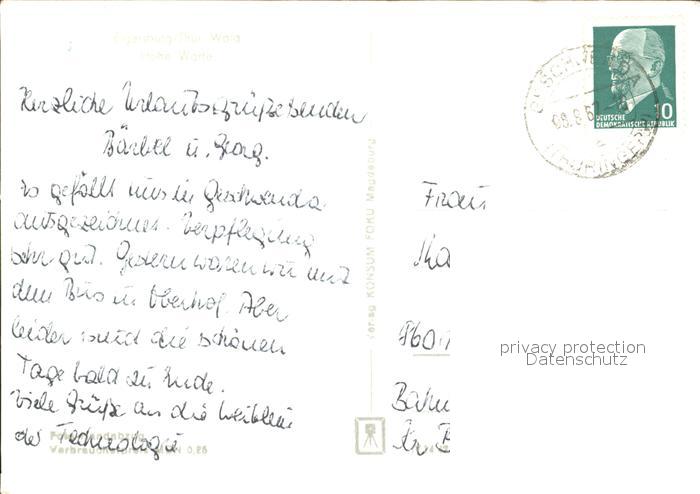 Elgersburg/Thür. Wald
Hohe Warte
Herzliche Urlaubsgrüße senden
Bärbel u. Georg.
Es gefällt uns in Geschwenda
ausgezeichnet. Verpflegung
sehr gut. Gestern waren wir mit
dem Bus in Oberhof. Aber
leider sind die schönen
Tage bald zu Ende.
Viele Grüße an die
der Technologie
Verbraucherpreis MDN 0,25
Verlag KONSUM FOKO Magdeburg
GESCHWENDA
08.8.67
(THÜRINGEN)
10
DEUTSCHE
DEMOKRATISCHE REPUBLIK
Frau
Ma
Bahn
Kr. B
privacy protection
Datenschutz